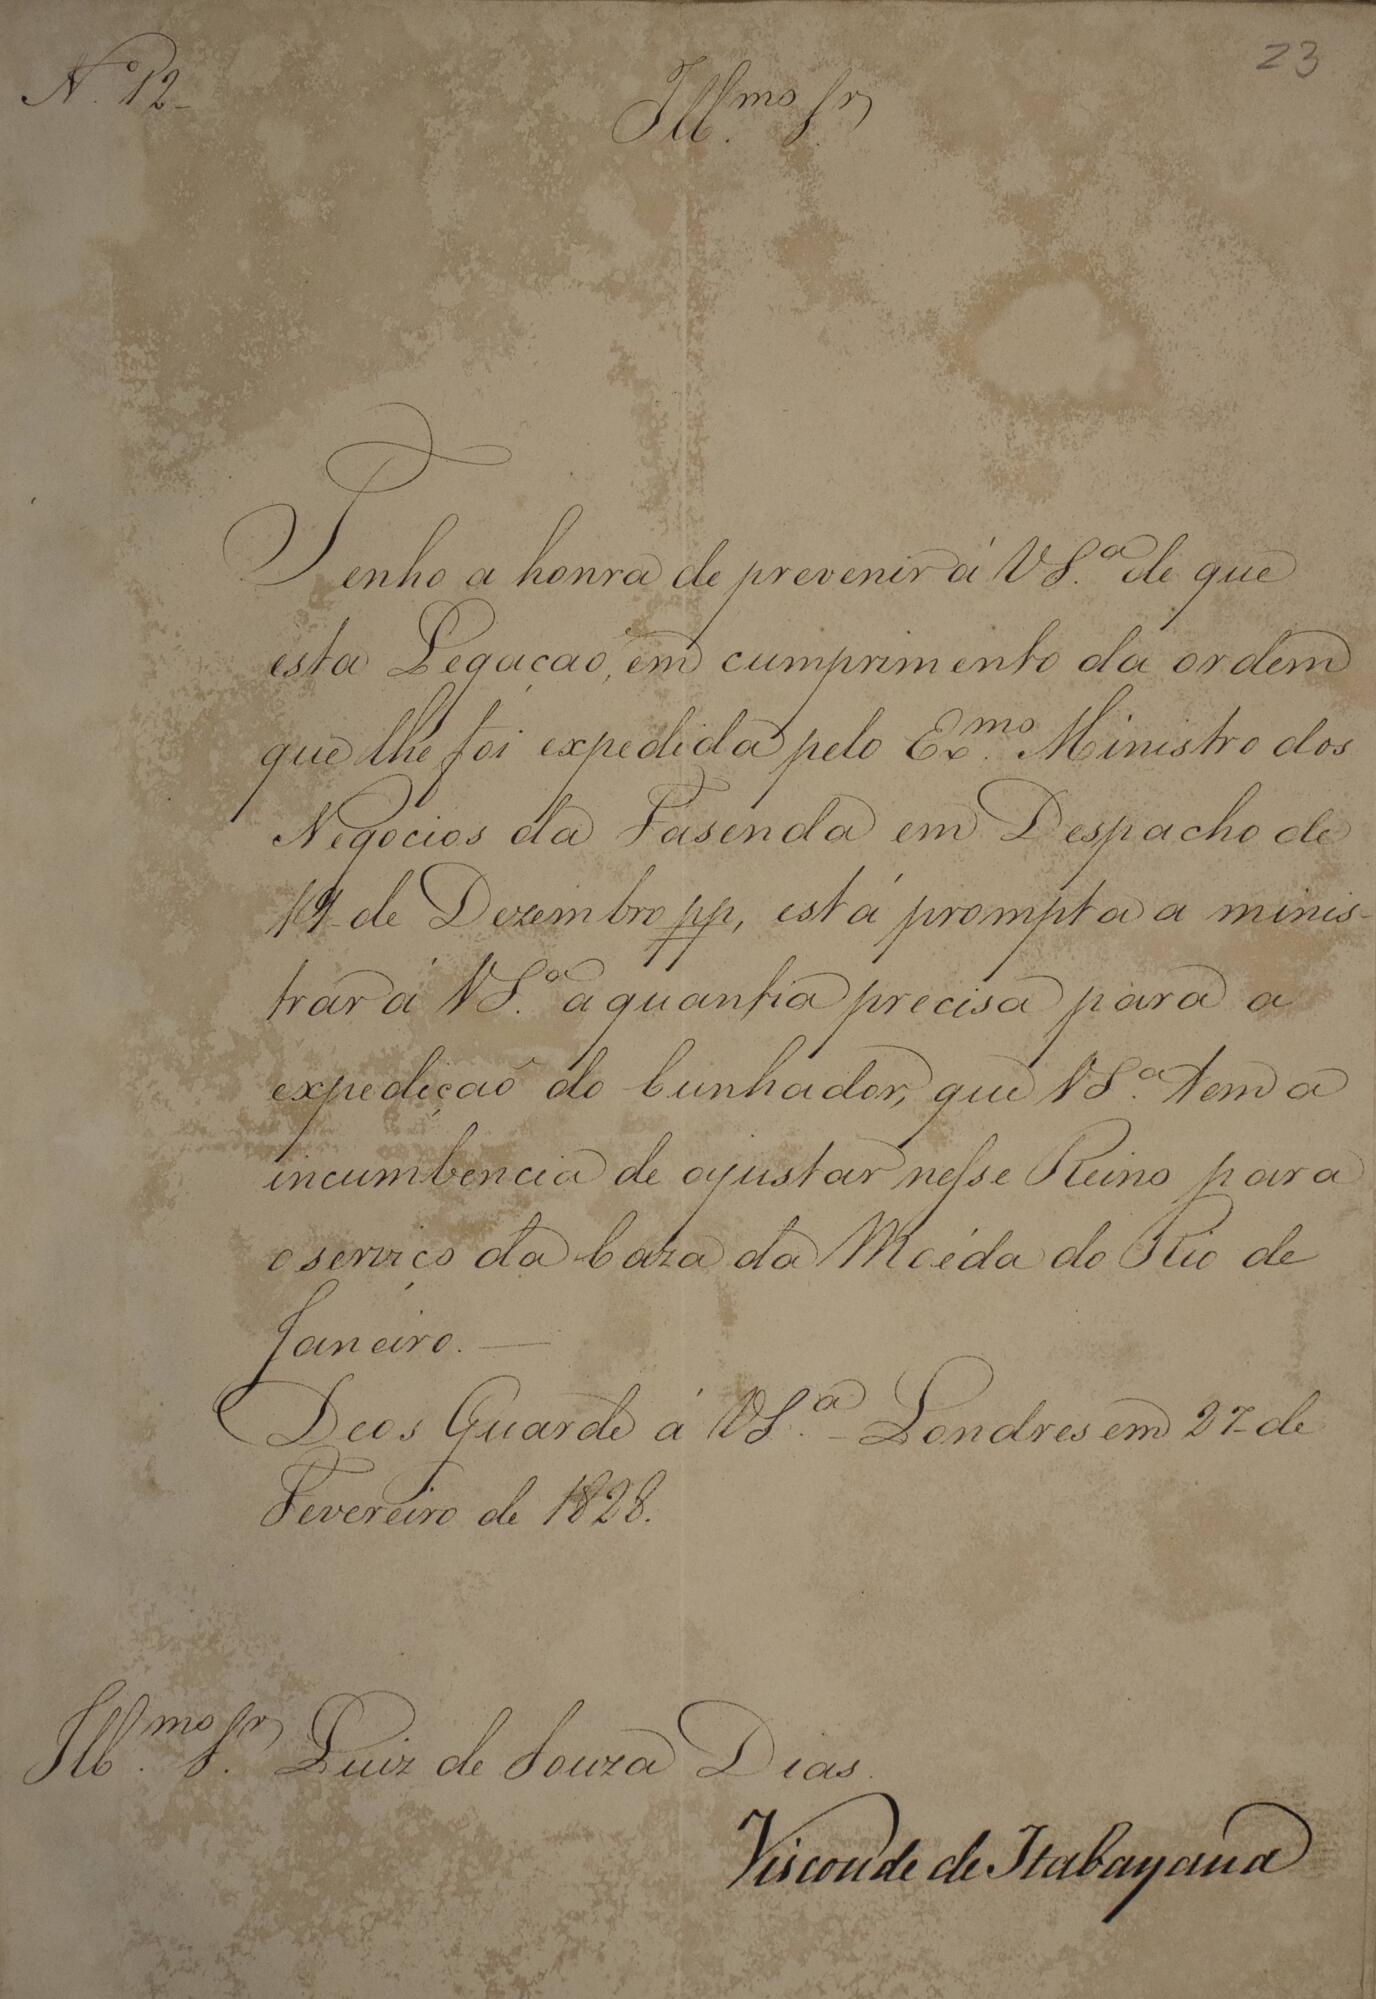 Nº 12
23
Ill.mo Sr.
Tenho a honra de prevenir á V S.ª de que
esta Legação, em cumprimento da ordem
que lhe foi expedida pelo Ex.mo Ministro dos
Negocios da Fasenda em Despacho de
19 de Dezembro pp, está prompta a minis-
trar á V S.ª a quantia precisa para a
expedição do Cunhador, que V S.ª tem a
incumbencia de ajustar nesse Reino para
o serviço da Caza da Moéda do Rio de
Janeiro. —
Deos Guarde á V S.ª - Londres em 27 de
Fevereiro de 1828.
Ill.mo Sr. Luiz de Souza Dias.
Visconde de Itabayana